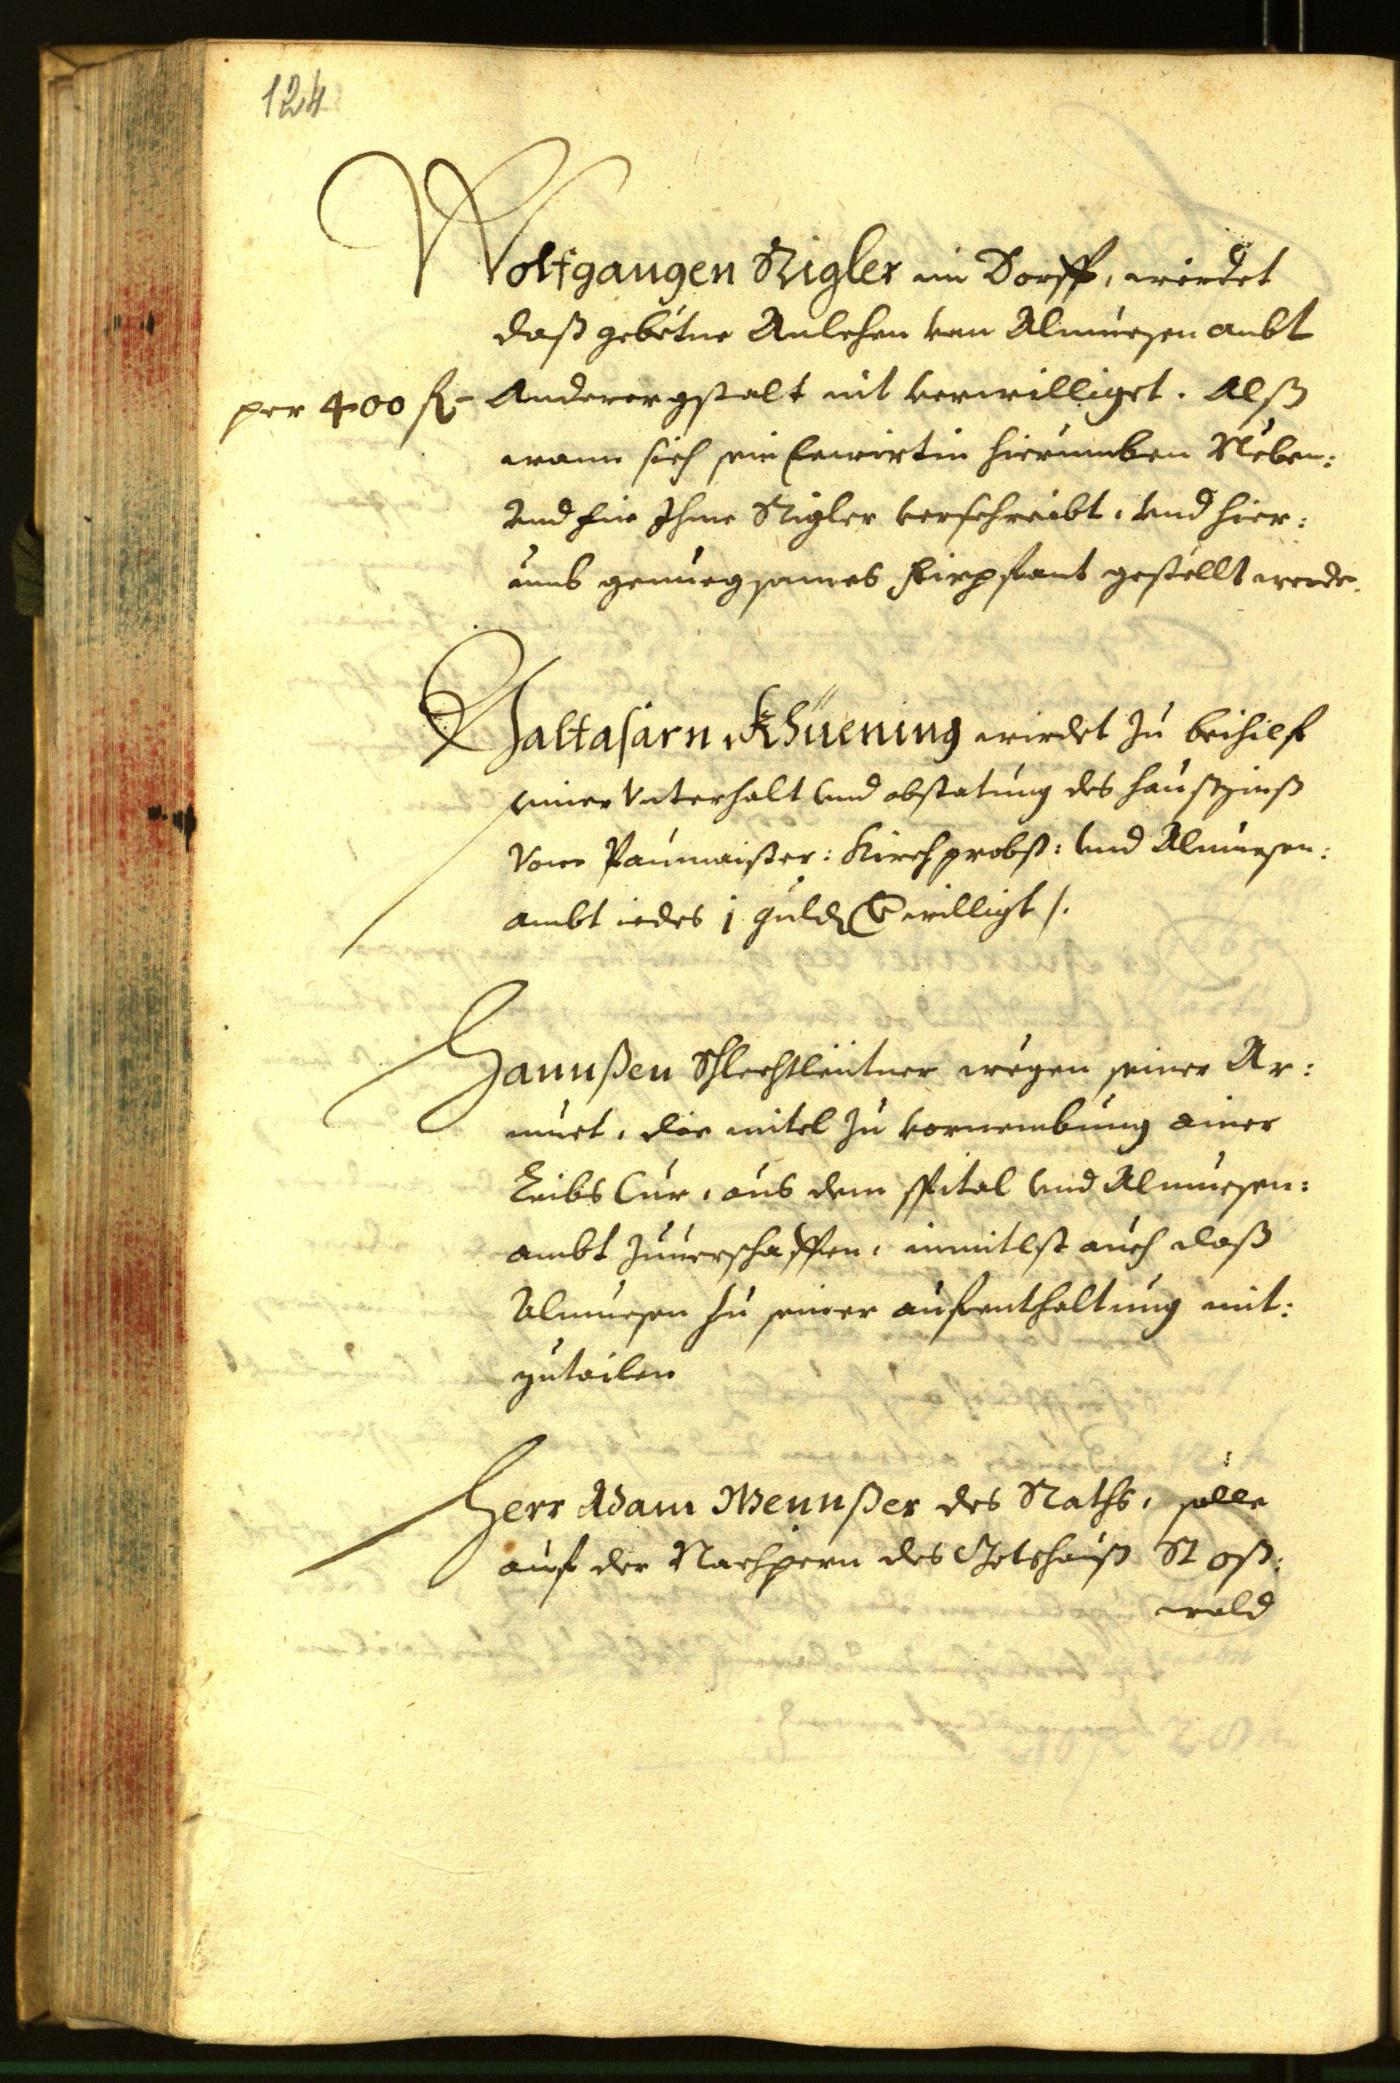 124
Wolfgangen Rigler im Dorff, wirdet
daß gebetne Anlehen vom Almuesenambt
per 400 fl- Anderergstalt nit verwilliget. Alß
wann sich sein Ewirtin hierumben Neben:
Und für Ihme Rigler verschreibt, und hier:
umb genuegsames fürpfant gestellt werde.
Baltasarn Khüening wirdet zu beihilf
seiner Unterhalt und abstatung des hauszinß
vom Paumaister: Kirchprobst: und Almuesen:
ambt iedes 1 guld bewilligt /.
Hannßen Schlechtleutner wegen seiner Ar:
muet, die mitel zu vornembung ainer
Leibs Cur, aus dem spital und Almuesen:
ambt zuuerschaffen, inmitlst auch daß
Almuesen zu seiner aufenthaltung mit:
zutailen
Herr Adam Wennßer des Raths, solle
auf der Nachpern des Gotshauß St Oß:
wald